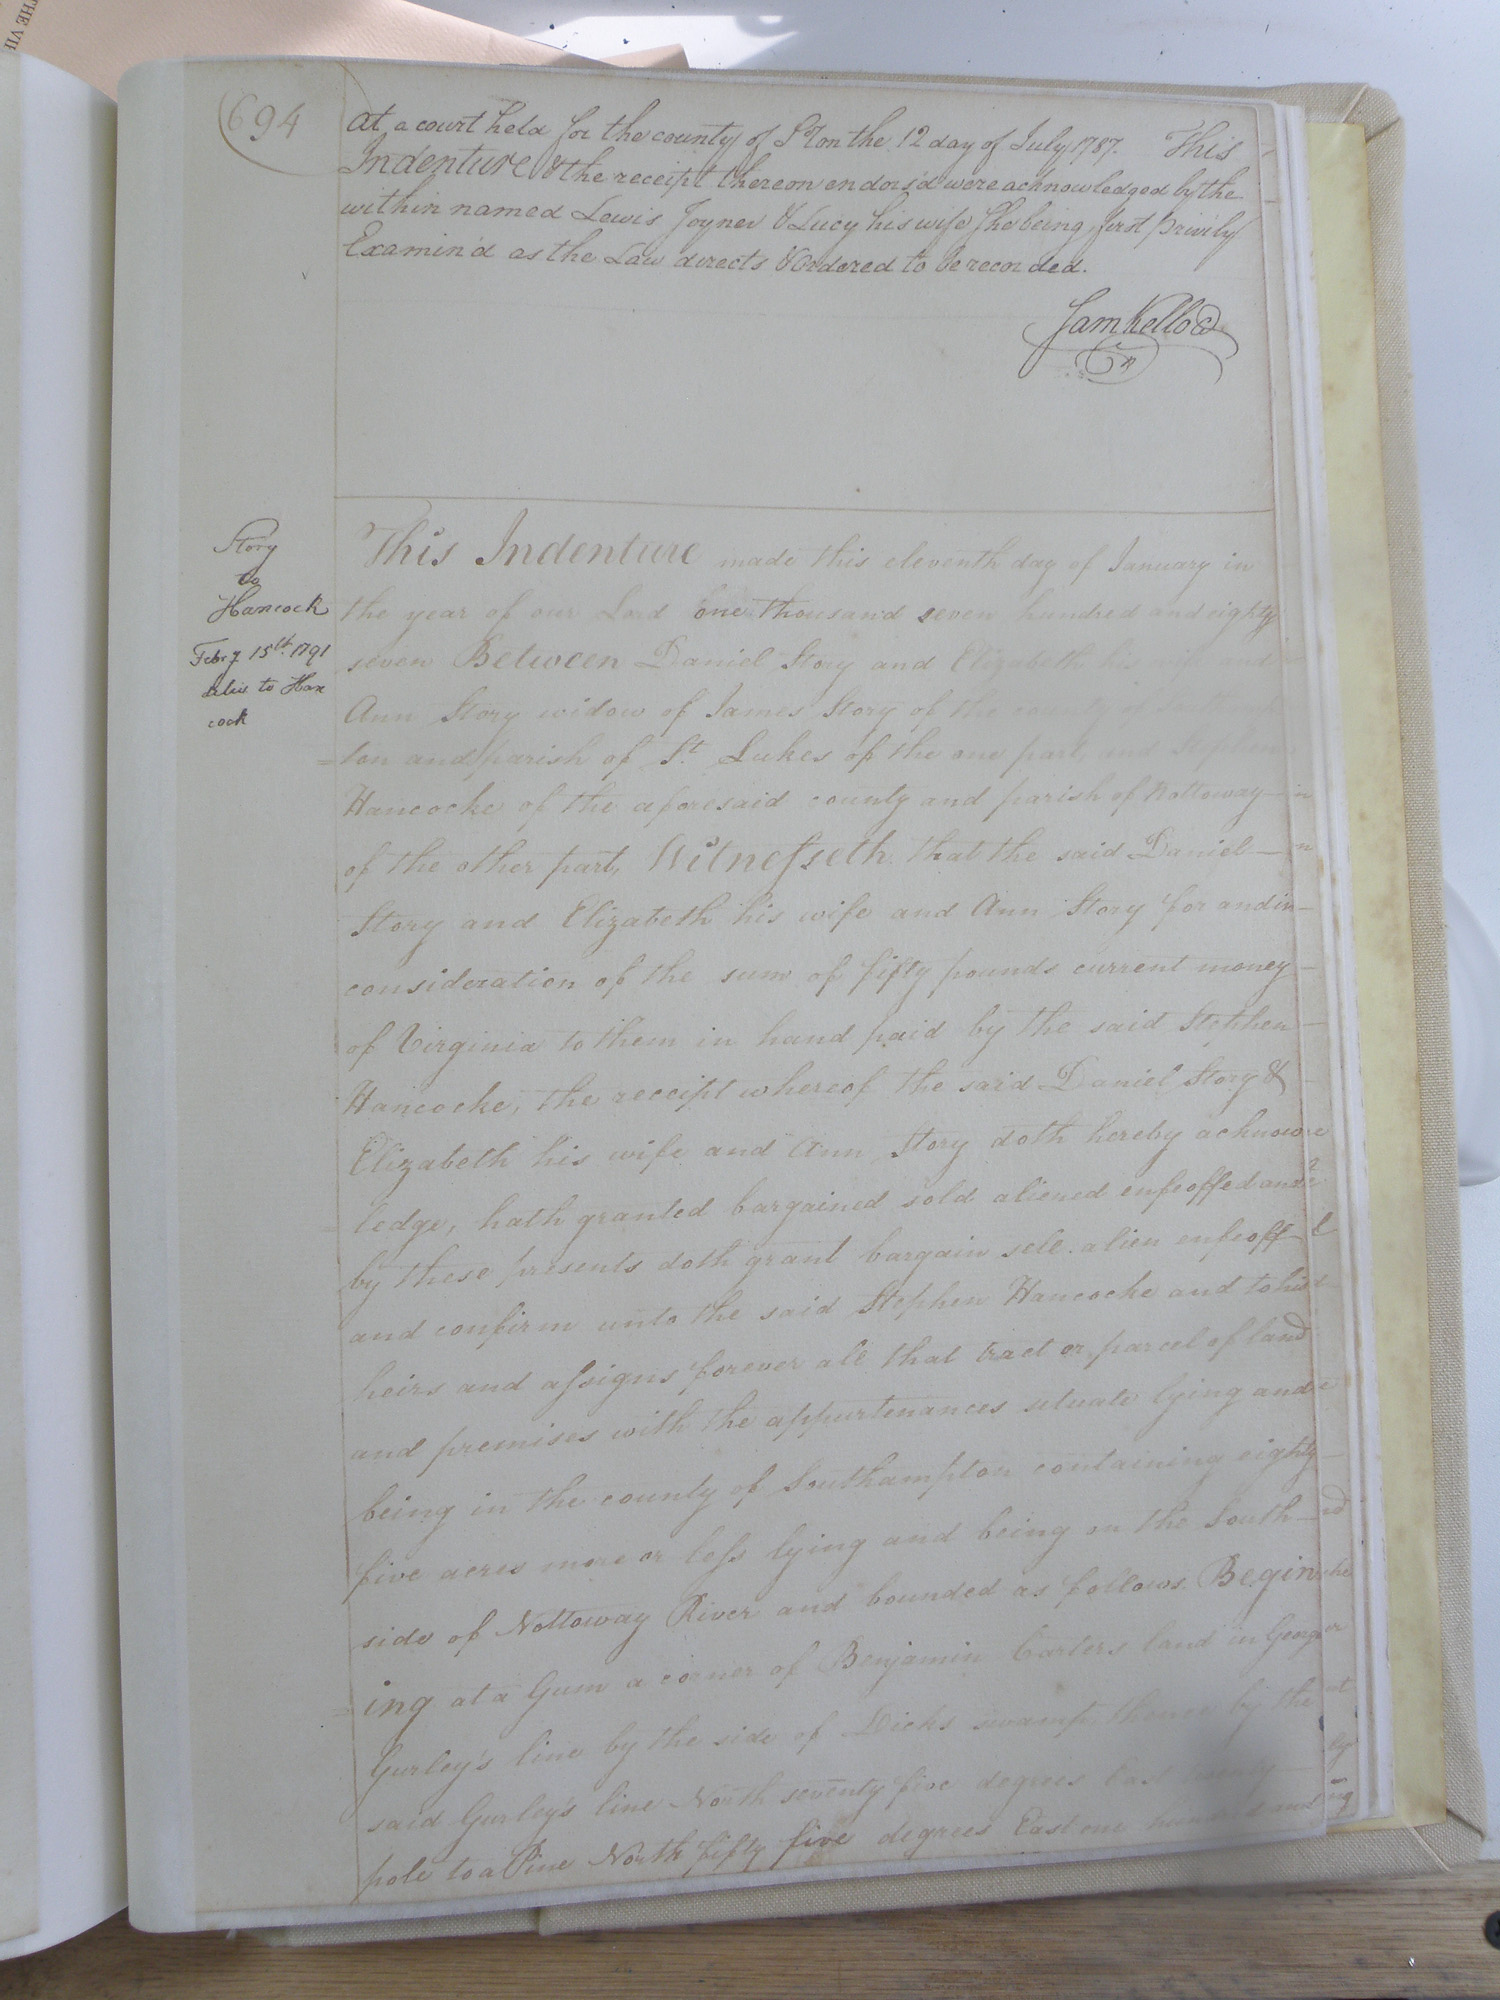 THE VII
694
At a court held for the county of S.ton the 12 day of July 1787. This
Indenture & the receipt thereon endors'd were acknowledged by the
within named Lewis Joyner & Lucy his wife she being first privily
Examin'd as the Law directs & Ordered to be recorded.
Sam Kello
Story
to
Hancock
Febry 15th. 1791
deliv to Han
cock
This Indenture made this eleventh day of January in
the year of our Lord one thousand seven hundred and eighty
seven Between Daniel Story and Elizabeth his wife and
Ann Story widow of James Story of the county of
ton and parish of St. Lukes of the one part, and Stephen
Hancocke of the aforesaid county and parish of Nottoway
of the other part, Witnesseth that the said Daniel
Story and Elizabeth his wife and Ann Story for and in
consideration of the sum of fifty pounds current money
of Virginia to them in hand paid by the said Stephen
Hancocke, the receipt whereof the said Daniel Story &
Elizabeth his wife and Ann Story doth hereby acknow
ledge, hath granted bargained sold aliened enfeoffed and
by these presents doth grant bargain sele alien enfeoff
and confirm unto the said Stephen Hancocke and to his
heirs and assigns forever all that tract or parcel of land
and premises with the appurtenances situate lying and
being in the county of Southampton containing eighty
five acres more or less lying and being on the South
side of Nottoway River and bounded as follows. Begin
ing at a Gum a corner of Benjamin Carters land in George
Gurley's line by the side of Dicks swamp, thence by the
said Gurley's line North seventy five degrees East
pole to a Pine North fifty five degrees East one